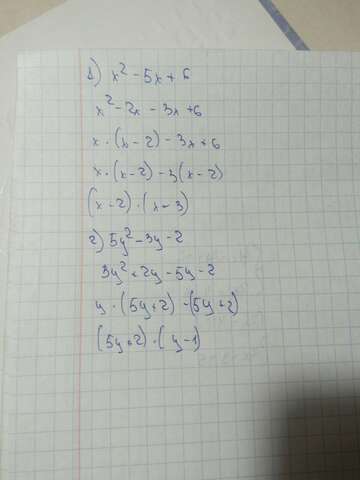 1) x² - 5x + 6
x² - 2x - 3x + 6
x · (x - 2) - 3x + 6
x · (x - 2) - 3(x - 2)
(x - 2) · (x - 3)
2) 5y² - 3y - 2
3y² + 2y - 5y - 2
y · (5y + 2) - (5y + 2)
(5y + 2) · (y - 1)